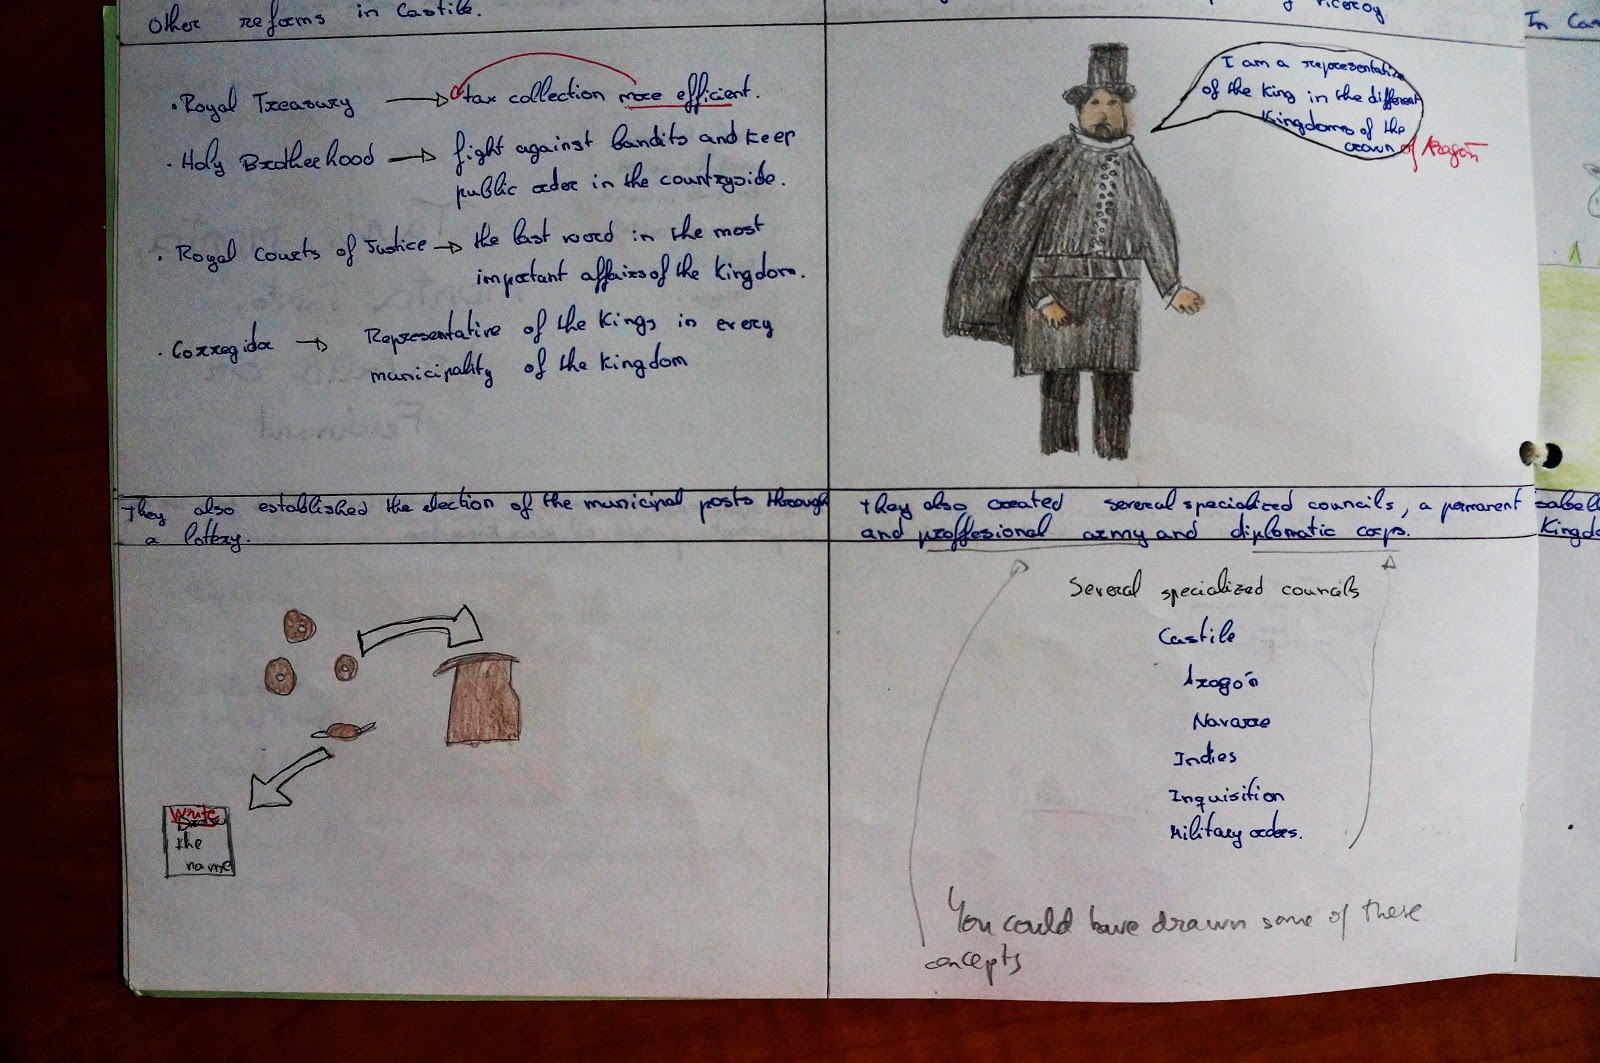 Other reforms in Castile.
· Royal Treasury → tax collection more efficient.
· Holy Brotherhood → fight against bandits and keep
public order in the countryside.
· Royal Courts of Justice → the last word in the most
important affairs of the Kingdom.
· Corregidor → Representative of the Kings in every
municipality of the Kingdom
viceroy
I am a representative
of the King in the different
Kingdoms of the
crown of Aragón
In
They also established the election of the municipal posts through
a lottery.
Write
the
name
they also created several specialized councils, a permanent
and proffesional army and diplomatic corps.
Several specialized councils
Castile
Aragón
Navarre
Indies
Inquisition
Military orders.
You could have drawn some of these
concepts